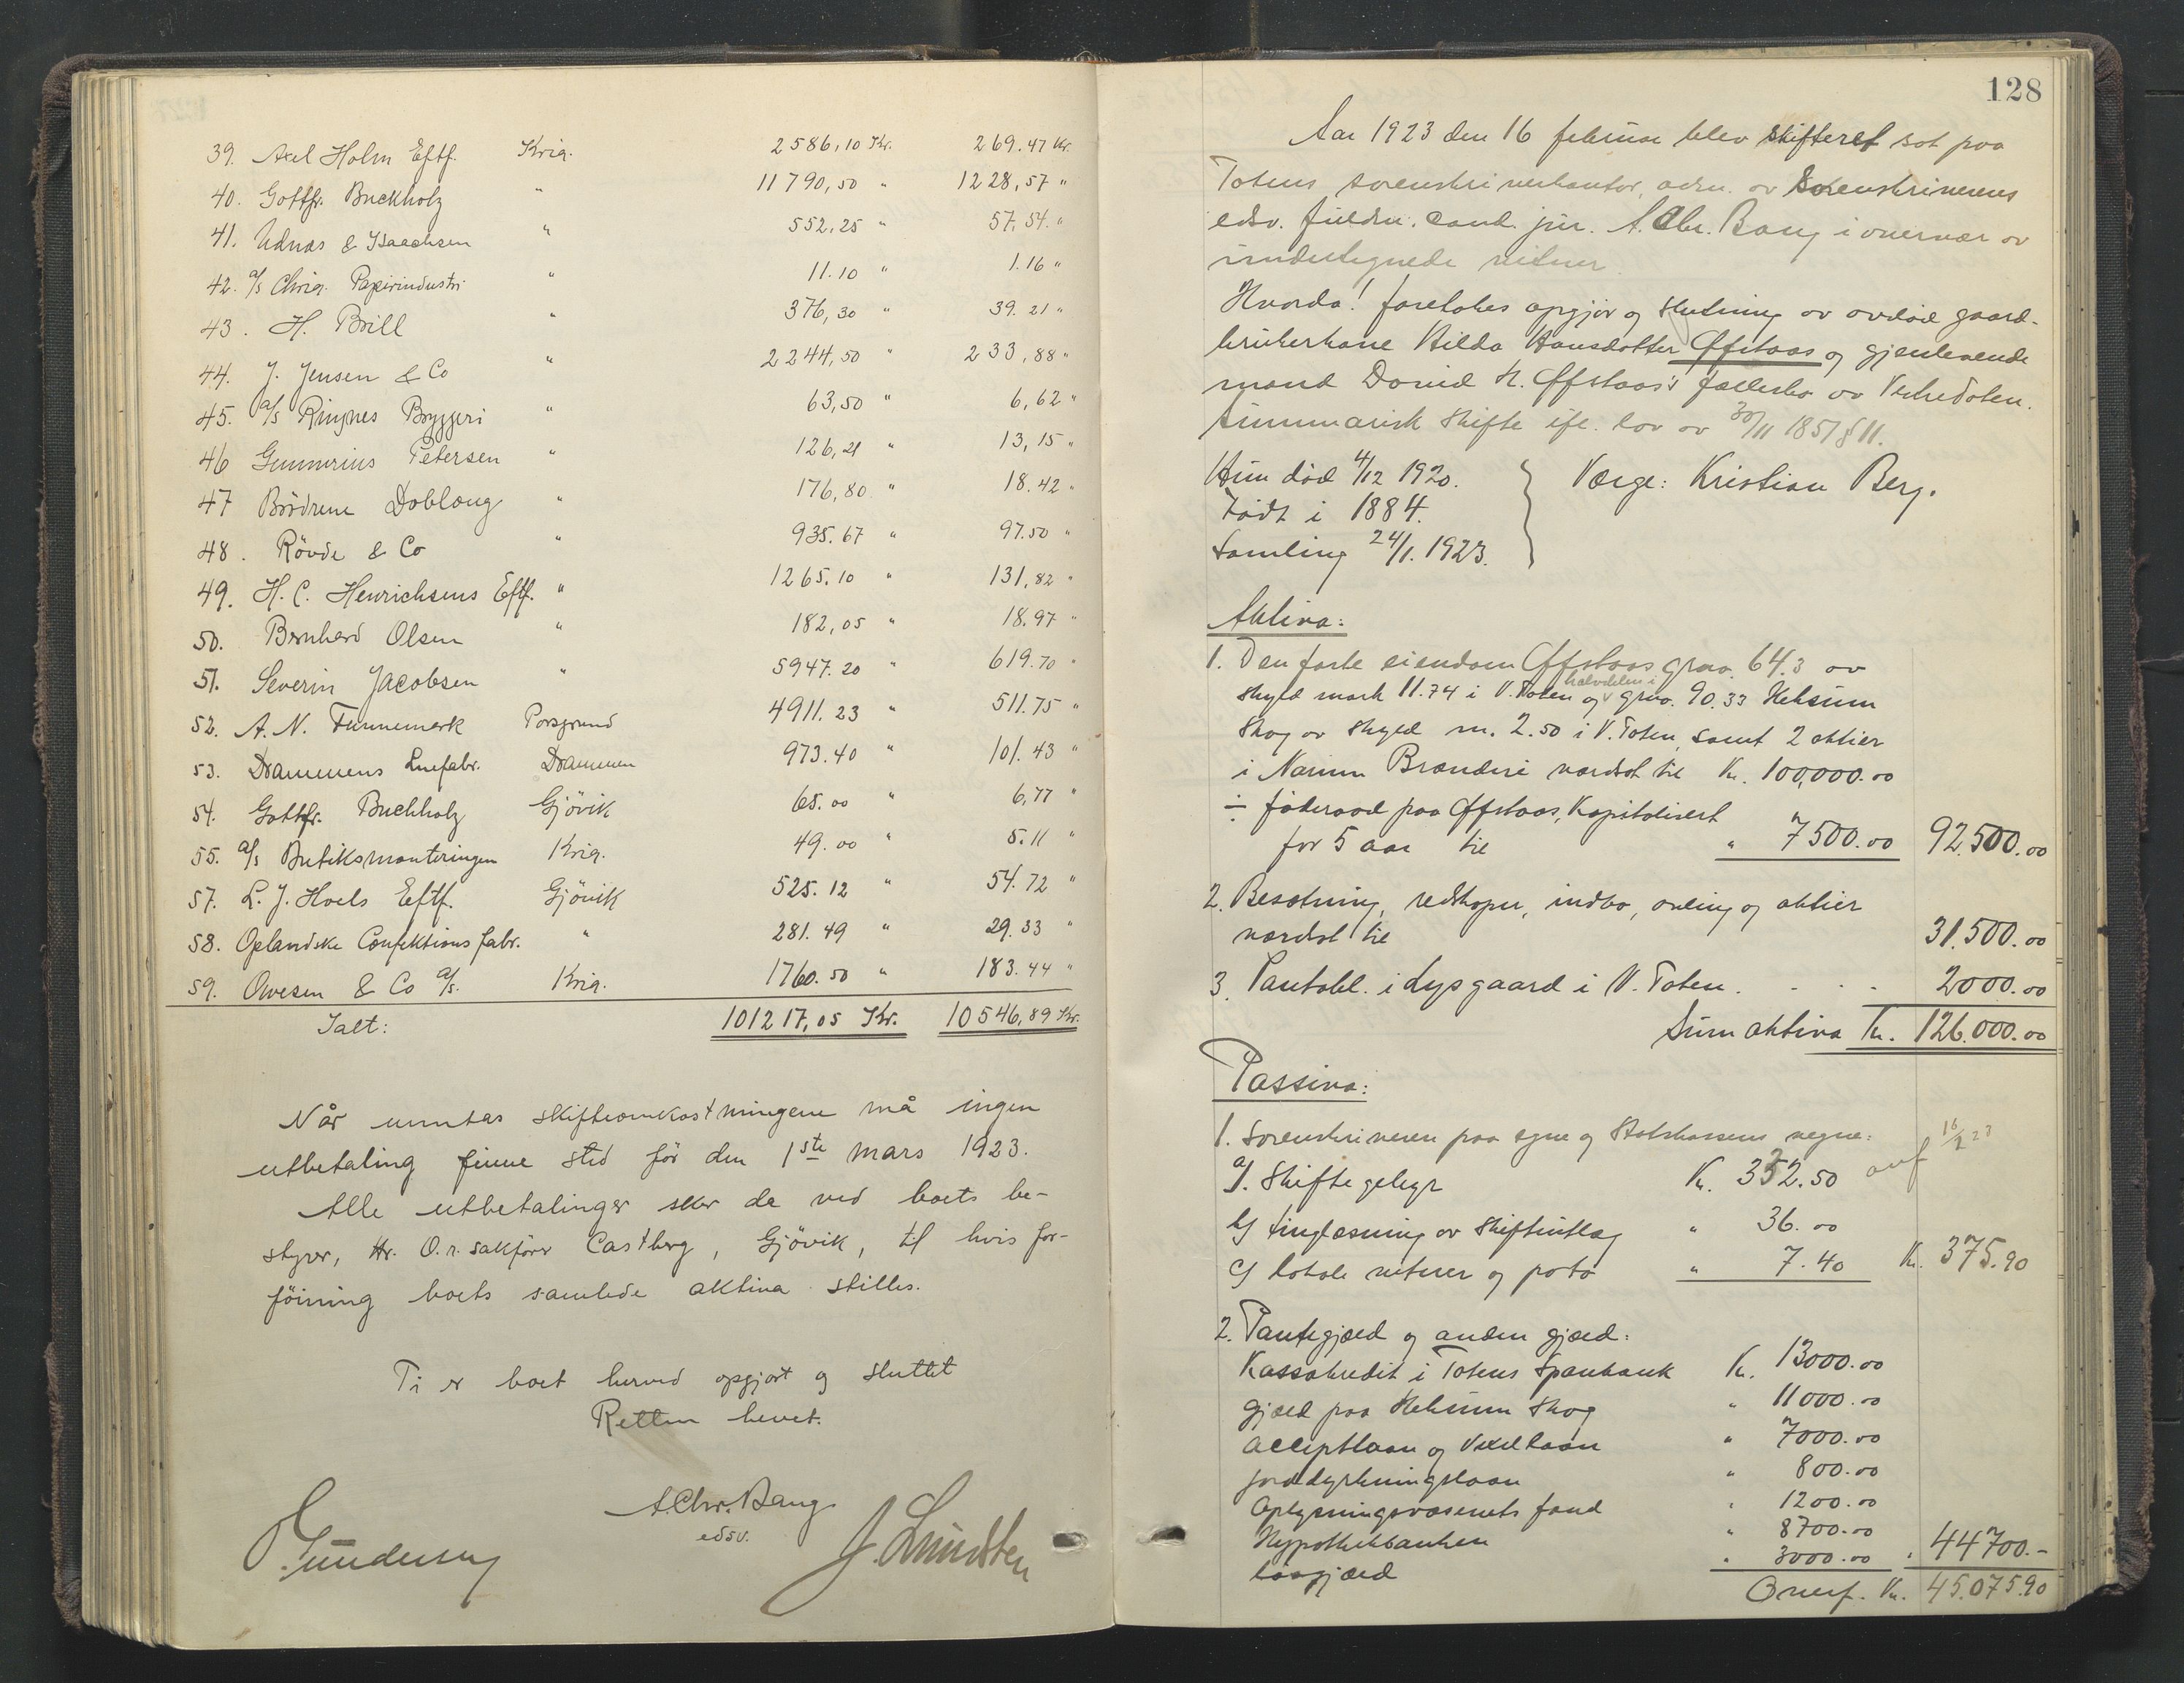 39. Axel Holm Eftf. Kria. 2586,10 Kr. 269.47 Kr.
40. Gottfr. Buckholz " 11790,50 " 1228,57 "
41. Udnæs & Isaachsen " 552,25 " 57,54. "
42. A/s Chria. Papirindustri " 11.10 " 1.16 "
43. H. Brill " 376,30 " 39.21 "
44. J. Jensen & Co " 2244,50 " 233,88 "
45. A/s Ringnes Bryggeri " 63,50 " 6,62 "
46 Gunnerius Petersen " 126,21 " 13,15 "
47 Brödrene Dobloug " 176,80 " 18.42 "
48. Rövde & Co " 935.67 " 97.50 "
49. H. C. Henrichsens Eftf. " 1265.10 " 131,82 "
50. Bernhard Olsen " 182,05 " 18.97 "
51. Severin Jacobsen " 5947.20 " 619.70 "
52. A. N. Funnemark Porsgrund 4911.23 " 511.75 "
53. Drammens Luefabr. Drammen 973.40 " 101.43 "
54. Gottfr. Buchholz Gjövik 65.00 " 6,77 "
55. A/s Butiksmonteringen Kria. 49.00 " 5.11 "
57. L. J. Hoels Eftf. Gjövik 525.12 " 54.72 "
58. Oplandske Confektionsfabr. " 281.49 " 29.33 "
59. Owesen & Co A/s. Kria. 1760.50 " 183.44 "
Ialt: 101217,05 Kr. 10546,89 Kr.
Når unntas skifteomkostningene må ingen
utbetaling finne sted för den 1ste mars 1923.
Alle utbetalinger sker da ved boets be-
styrer, Hr. O.r.sakförer Castberg, Gjövik, til hvis for-
föining boets samlede aktiva stilles.
Ti er boet herved opgjort og sluttet
Retten hevet.
A.Chr. Bang
edsv.
O. Gundersen J. Lundsten
128
Aar 1923 den 16 februar blev skifteret sat paa
Totens sorenskriverkontor, adm. av Sorenskriverens
edsv. fuldm. cand. jur. A. Chr. Bang i overvær av
undertegnede vitner.
Hvorda! foretokes opgjør og slutning av avdød gaard-
brukerkone Hilda Hansdatter Offstaas og gjenlevende
mand David H. Offstaas's fællesbo av Vestre Toten.
Summarisk Skifte ifl. lov av 30/11 1851 § 11.
Hun död 4/12 1920. Værge: Kristian Berg.
Födt i 1884.
Samling 24/1. 1923.
Aktiva:
1. Den faste eiendom Offstaas grno. 64.3 av
skyld mark 11.74 i V. Toten og halvdelen i grno. 90.33 Heksum
Skog av skyld m. 2.50 i V. Toten, samt 2 aktier
i Narum Brænderi værdsat til Kr. 100,000.00
÷ föderaad paa Offstaas, Kapitalisert
for 5 aar til " 7500.00 92,500.00
2. Besætning, redskaper, indbo, avling og aktier
værdsat til 31.500.00
3. Pantobl. i Lysgaard i V. Toten. - - - 2000.00
Sum aktiva Kr. 126.000.00
Passiva:
1. Sorenskriveren paa egne og Statskassens vegne:
a/. Skiftegebyr Kr. 332.50 16/2 23
b/ tinglæsning av Skifteutlæg " 36.00
c/ lokale vitner og porto " 7.40 Kr. 375.90
2. Pantegjæld og anden gjæld:
Kassakredit i Totens Sparebank Kr. 13000.00
gjæld paa Heksum Skog " 11000.00
Acceptlaan og Vexellaan " 7000.00
jorddyrkningslaan " 800.00
Oplysningsvæsenets fond " 1200.00
Hypothekbanken " 8700.00
løsgjæld " 3000.00 " 44700.-
Overf. Kr. 45.075.90